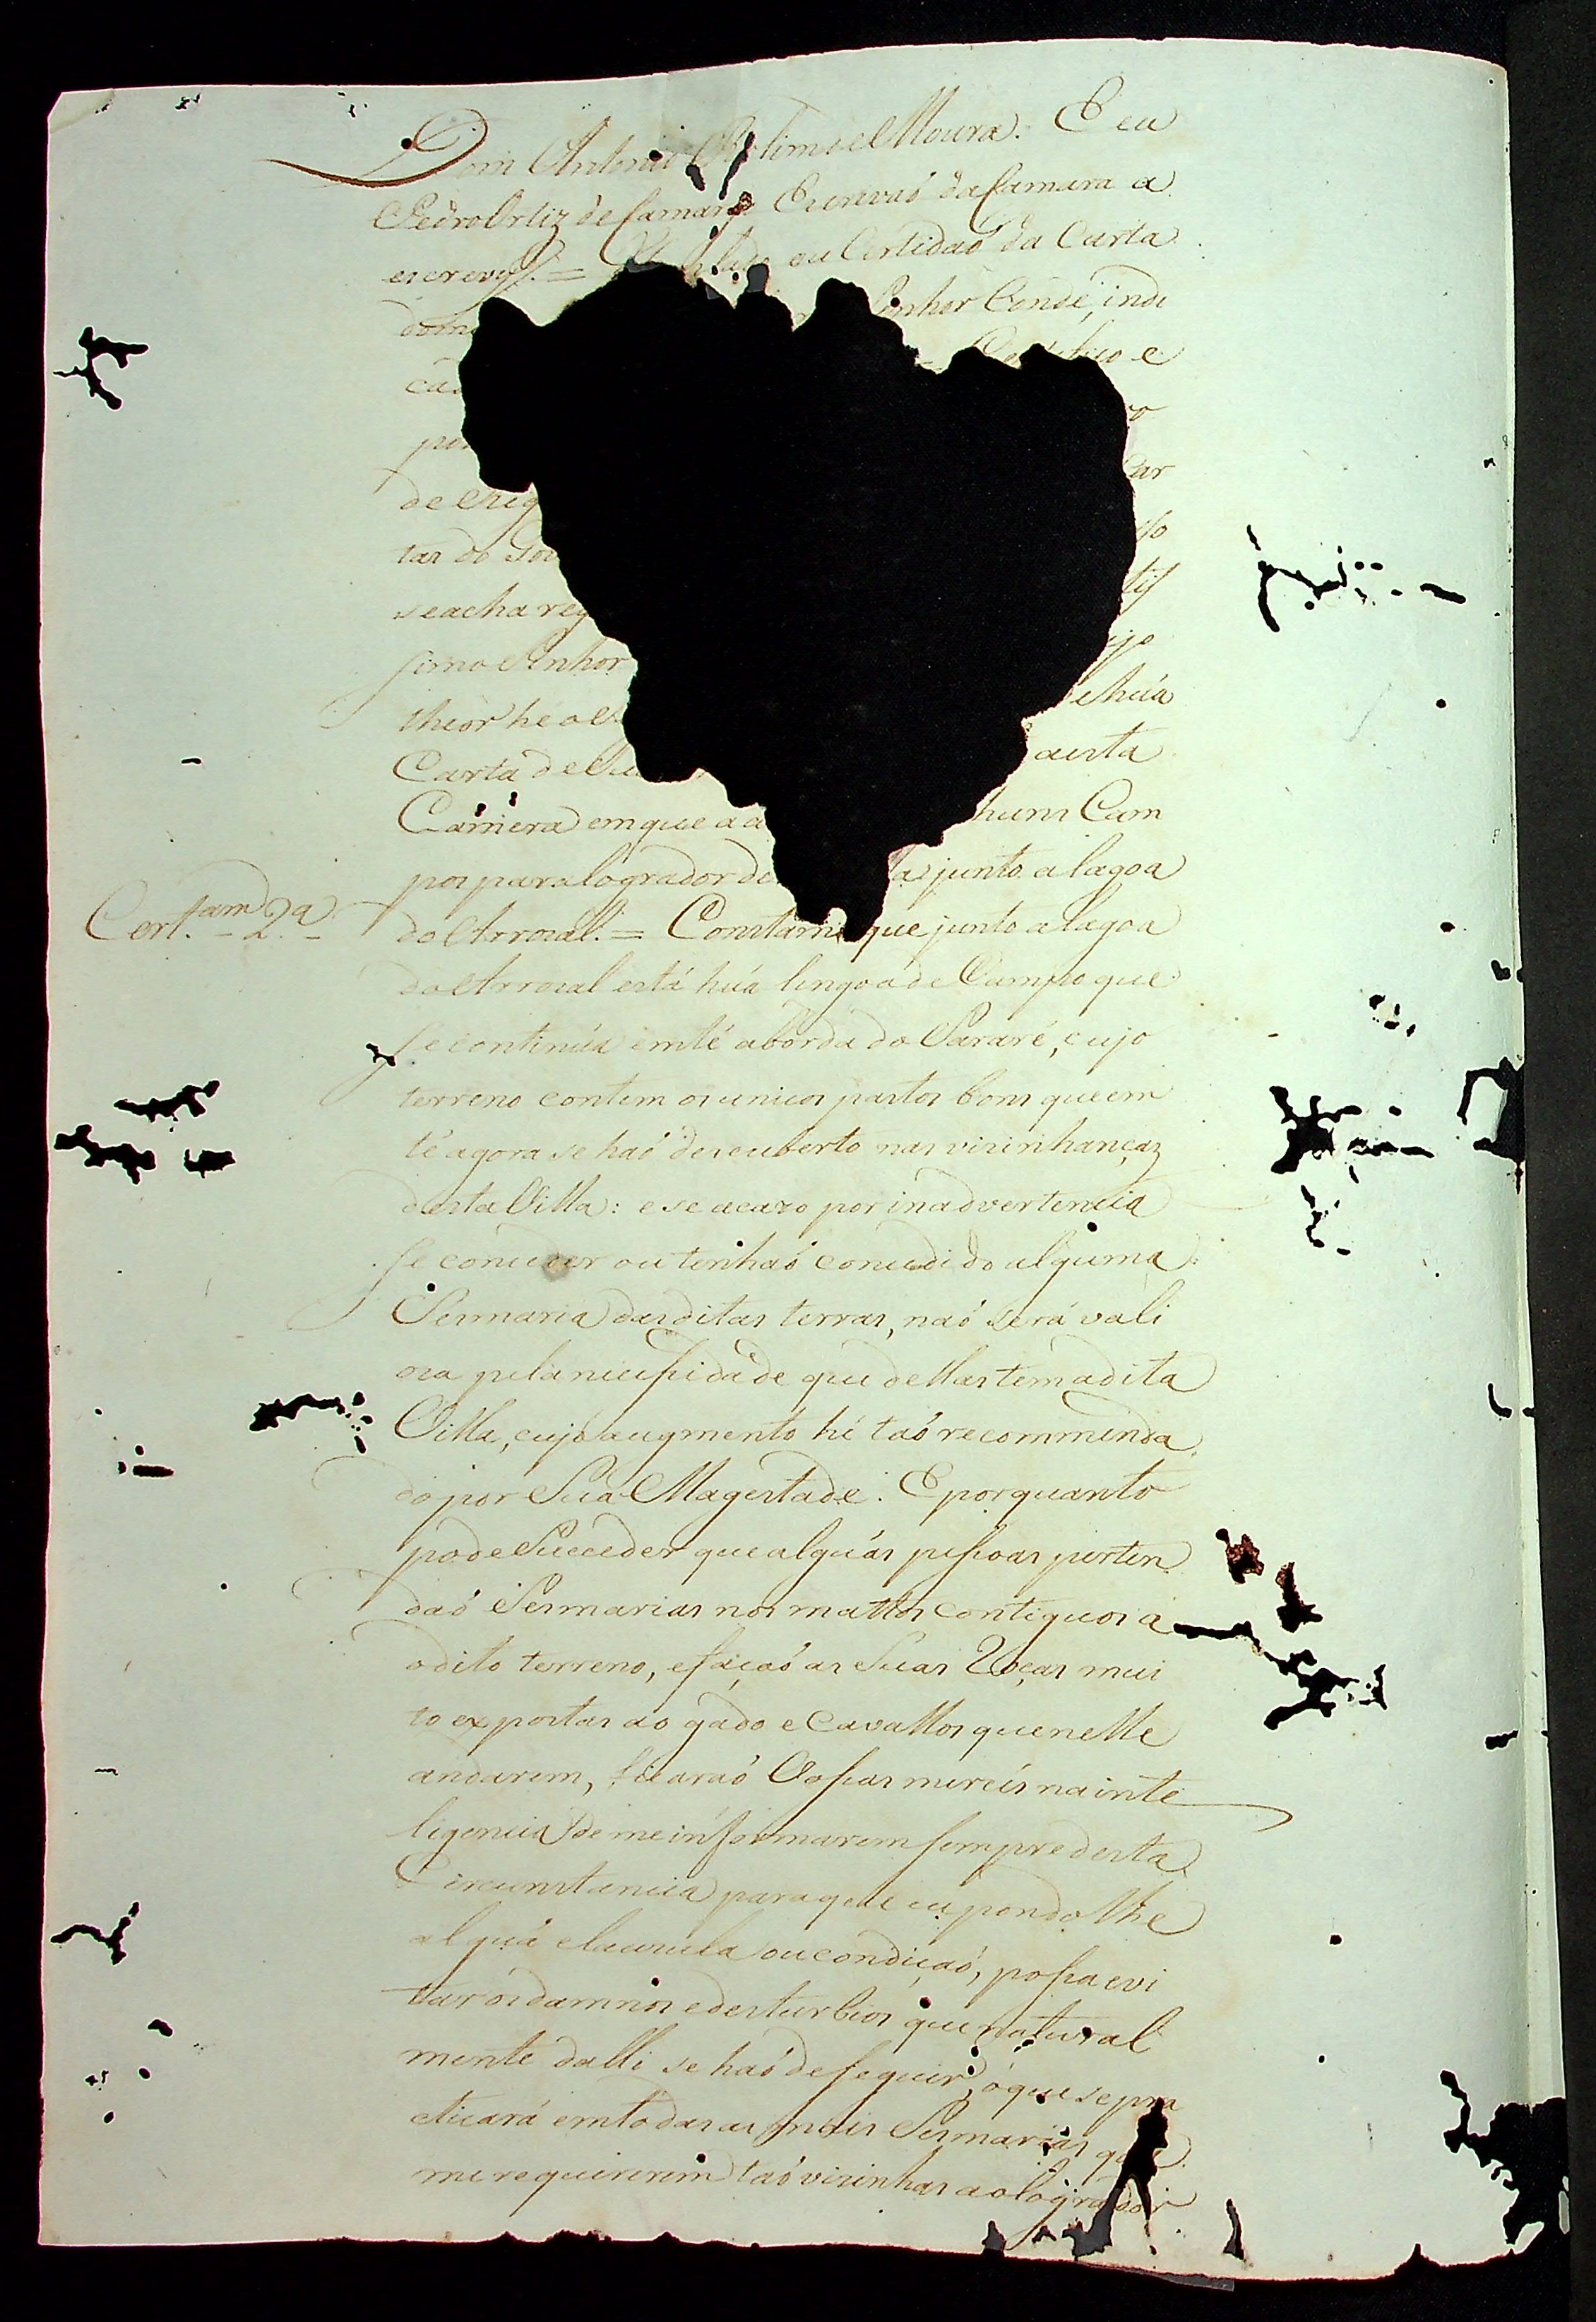 Dom Antonio Rolim de Moura. E eu
Pedro Ortiz de Camargo Escrivaõ da Camara a
escrevy. = ou Certidaõ da Carta
Senhor Conde, indi
e
de
tas do
se acha
simo Senhor
theor he o húa
Carta de a esta
Camera em que a hum Cam
pos para logrador de junto a lagoa
Cert.am 2.a
do Arroial. = Constame que junto a lagoa
do Arroial está húa lingoa de Campo que
se continúa emté a borda do Sararé, cujo
terreno contem os unicos pastos bons que em
té agora se haõ descuberto nas visinhanças
desta Villa: e se acazo por inadvertencia
se conceder ou tenhaõ concedido alguma
Sesmaria das ditas terras, naõ será vali
oza pela necessidade que dellas tem a dita
Villa, cujo augmento hé taõ recommenda
do por Sua Magestade. E porquanto
pode Succeder que alguás pessoas perten
daõ Sesmarias nos mattos contiguos a
o dito terreno, e façaõ as Suas Roças mui
to expostas ao gado e Cavallos que nelle
andarem, ficaraõ Vossas mercês na inte
ligencia de me informarem sempre desta
Circunstancia para que eu pondo lhe
alguá clauzula ou condiçaõ, possa evi
tar os damnos e desturbios que natural
mente dalli se haõ de seguir, o que se pra
cticará em todas as mais Sesmarias que
me requererem taõ visinhas ao logrador